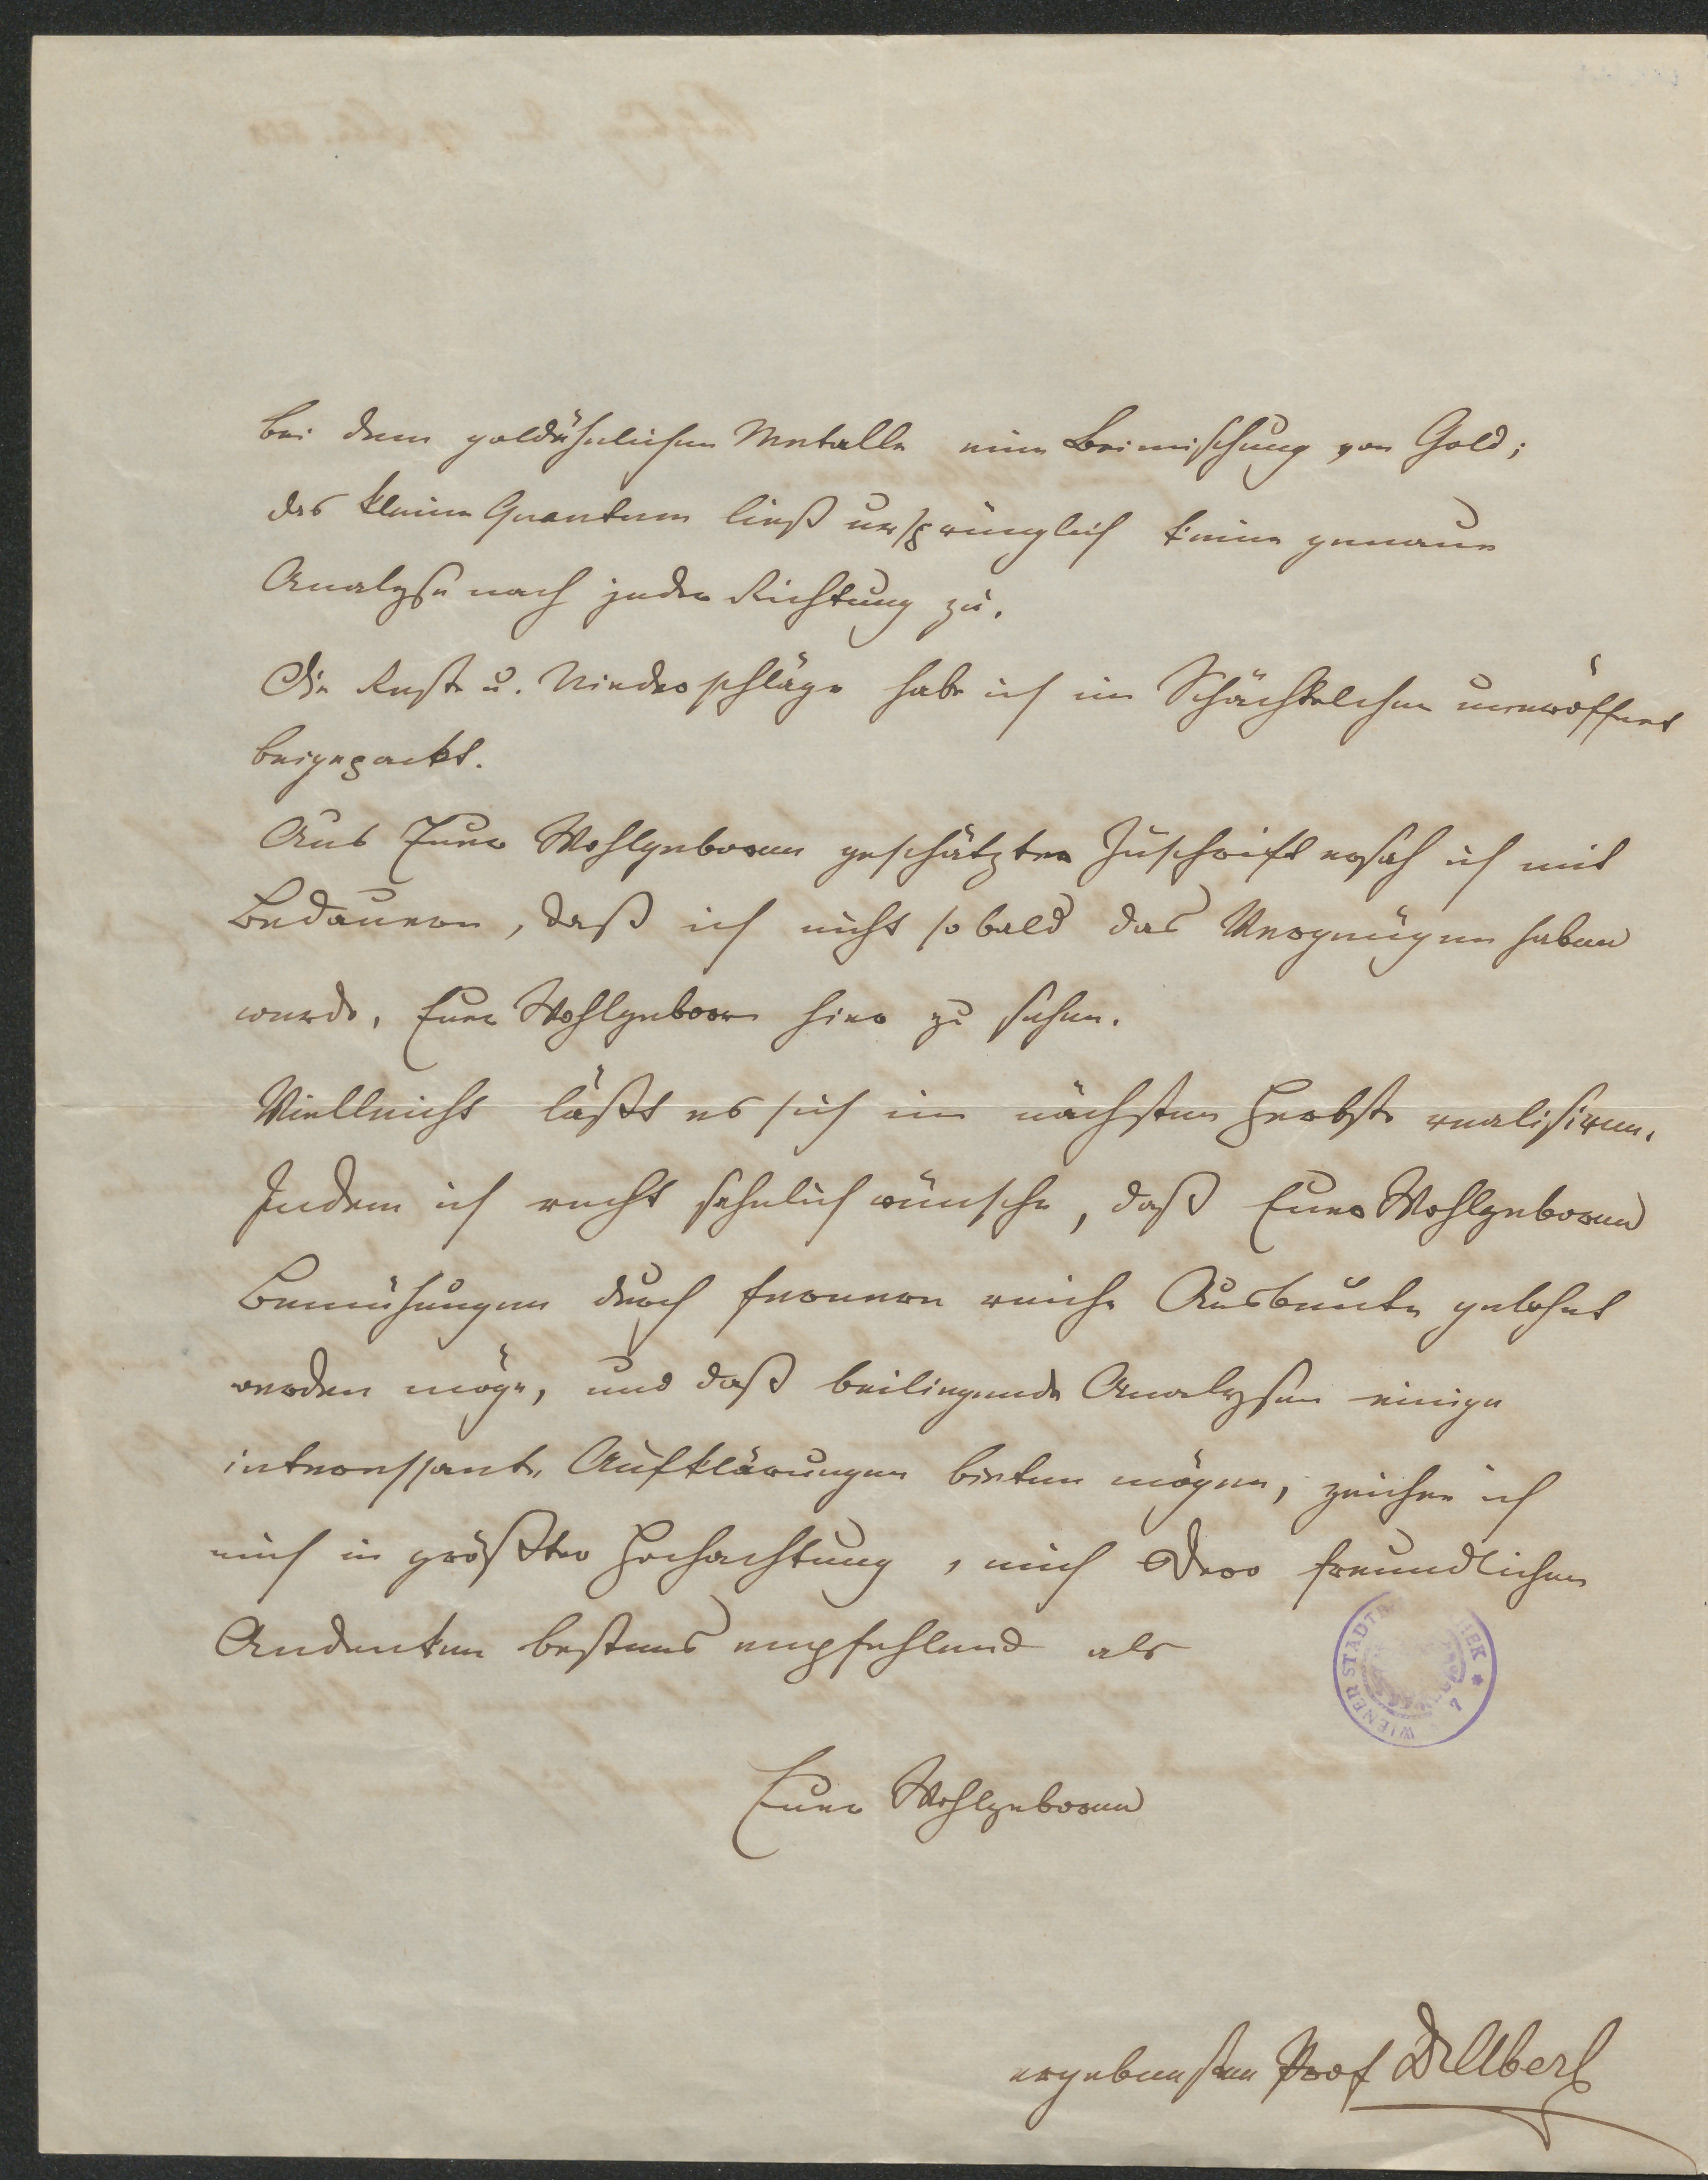 bei dem goldähnlichen Metalle eine Beimischung von Gold;
das kleine Quantum ließ ursprünglich keine genaue
Analyse nach jeder Richtung zu.
Die Reste u. Niederschläge habe ich im Schächtelchen uneröffnet
beigepackt.
Aus Euer Wohlgeboren geschätzter Zuschrift ersah ich mit
Bedauern, daß ich nicht so bald das Vergnügen haben
werde, Euer Wohlgeboren hier zu sehen.
Vielleicht läßt es sich im nächsten Herbste realisiren.
Indem ich recht sehnlich wünsche, daß Euer Wohlgeboren
Bemühungen durch fernere reiche Ausbeute gelohnt
werden möge, und daß beiliegende Analysen einige
interessante Aufklärungen bieten mögen, zeichne ich
mich in größter Hochachtung, mich Dero freundlichen
Andenken bestens empfehlend als
WIENER STADTB
Euer Wohlgeboren
ergebensten Prof Dr